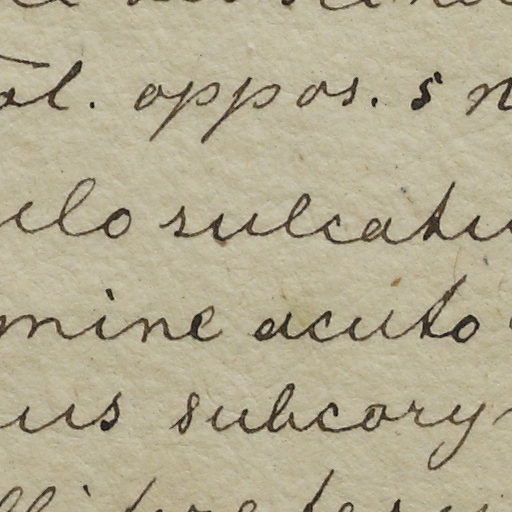 ol. oppos. s n
ulo sulcatu
mine acuto
us subcory